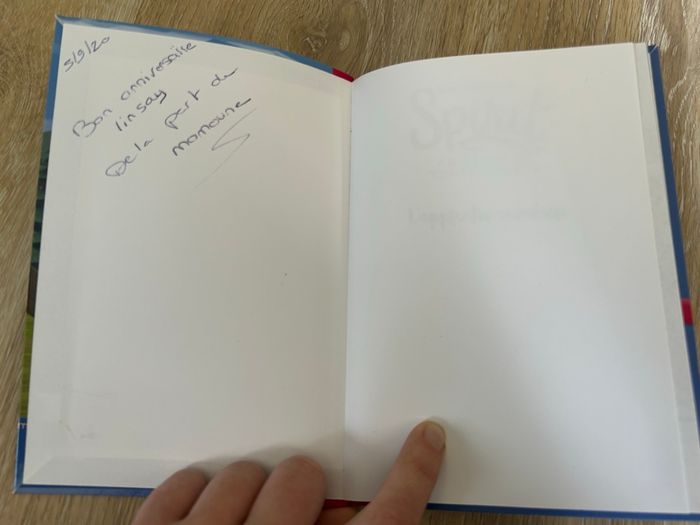 5/9/20
Bon anniversaire
linsay
De la part de
mamoune
Spirit